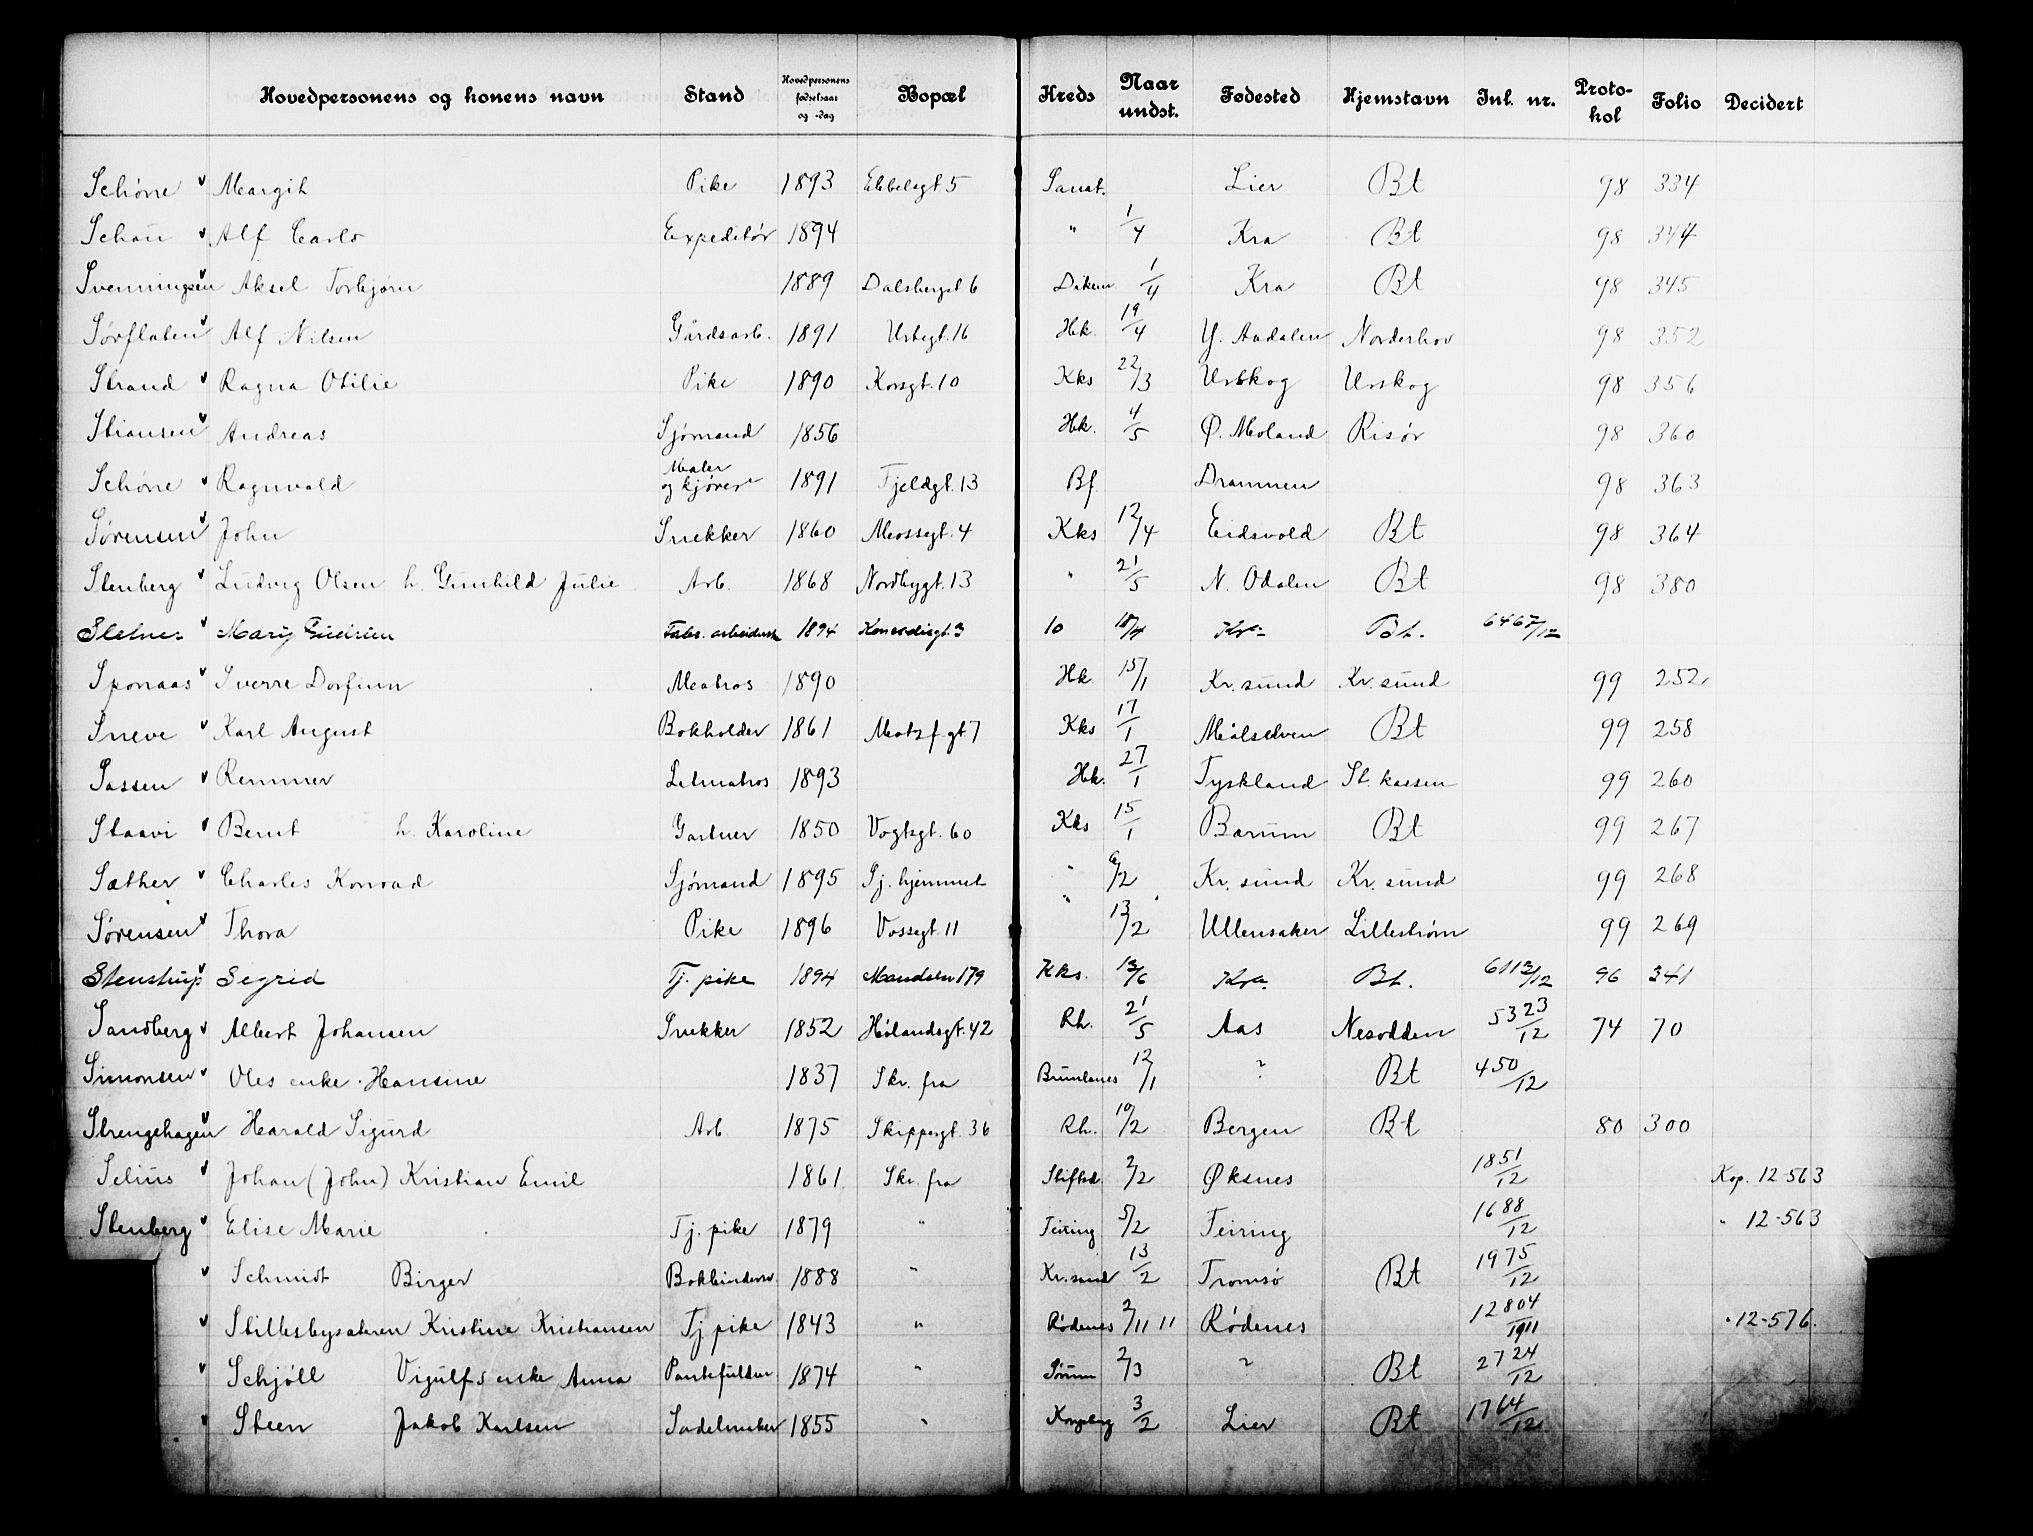 Hovedpersonens og konens navn Stand Hovedpersonens fødselsaar og -dag Bopæl Kreds Naar undst. Fødested Hjemstavn Inl. nr. Proto-kol Folio Decidert
Schøne v Margit Pike 1893 Ebbelsgt. 5 Sanat. Lier Bt 98 334
Schou v Alf Carlo Expeditør 1894 " 1/4 Kra Bt 98 344
Svenningsen v Aksel Torbjørn 1889 Dalsbergst 6 Dikem 1/4 Kra Bt 98 345
Sørflaten v Alf Nilsen Gårdsarb. 1891 Urtegt. 16 Hk. 19/4 Y. Aadalen Norderhov 98 352
Strand v Ragna Otilie Pike 1890 Korsgt. 10 Kks 22/3 Urskog Urskog 98 356
Stiansen v Andreas Sjømand 1856 Hk. 4/5 Ø. Moland Risør 98 360
Schøne v Ragnvald Maler og kjører 1891 Fjeldgt. 13 Bf. Drammen 98 363
Sørensen v John Snekker 1860 Mossegt. 4 Kks 12/4 Eidsvold Bt 98 364
Stenberg v Ludvig Olsen h. Gunhild Julie Arb. 1868 Nordbygt. 13 " 21/5 N. Odalen Bt 98 380
Sletner v Mary Gudrun Fabr. arbeiderske 1894 10 Kra Bt. 6467/12
Sponaas v Sverre Dorfinn Matros 1890 Hk 15/1 Kr. sund Kr. sund 99 252
Sneve v Karl August Bokholder 1861 Motzf.gt 7 Kks 17/1 Målselven Bt 99 258
Sassen v Remmer Letmatros 1893 Hk. 27/1 Tyskland St. kassen 99 260
Staavi v Bernt h. Karoline Gartner 1850 Vogtsgt. 60 Kks 15/1 Bærum Bt 99 267
Sæther v Charles Konrad Sjømand 1895 Sj. hjemmet " 6/2 Kr. sund Kr. sund 99 268
Sørensen v Thora Pike 1896 Vossegt. 11 " 13/2 Ullensaker Lillestrøm 99 269
Stenstrup v Segrid Tj. pike 1894 Kks. 13/6 Kra Bt. 6112/12 96 341
Sandberg v Albert Johansen Snekker 1852 Hølandsgt. 42 Rh. 21/5 Aas Nesodden 5323/12 74 70
Simonsen v Oles enke Hansine 1837 Skr. fra Brunlanes 12/1 ? Bt 450/12
Strengehagen v Harald Sigurd Arb. 1875 Skippergt. 36 Rh. 10/2 Bergen Bt 80 300
Selius v Johan (John) Kristian Emil 1861 Skr. fra 2/2 Øksnes 1851/12 Kop. 12-563
Stenberg v Elise Marie Tj. pike 1879 " Feiring 5/2 Feiring 1688/12 " 12-563
v Schmidt Birger Bokbindersv. 1888 " Kr. sund 13/2 Tromsø Bt 1975/12
v Stillesbysæteren Kristine Kristiansen Tj pike 1843 " Rødenes 2/11 11 Rødenes 12804/1911 " 12-576.
v Schjøll Vigulfs enke Anna 1874 " Sørum 2/3 ? Bt 2724/12
v Steen Jakob Karlsen Sadelmaker 1855 " Kongsberg 3/2 Lier Bt 1764/12